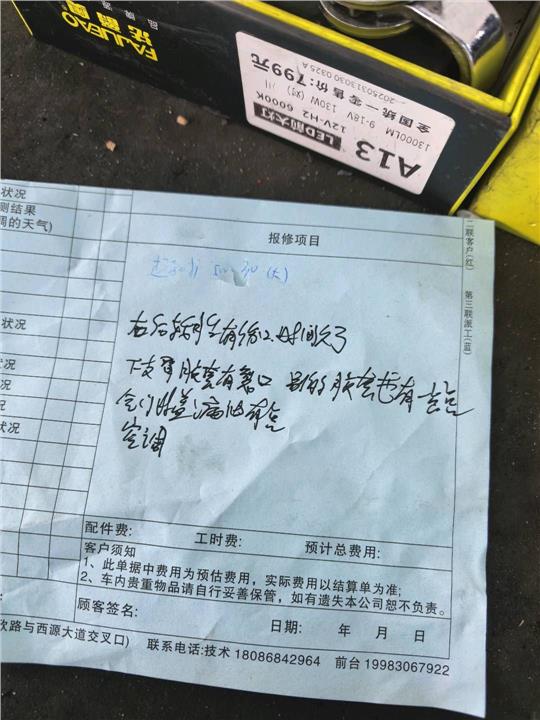 法爵奥
FAJUEAO
品牌源
A13
LED前大灯
12V-H2 6000K
13000LM 9-18V 130W (对)
全国统一零售价:799元
202503130300325A
状况
测结果
周的天气)
状况
状况
状况
报修项目
二联客户(红)
第三联派工(蓝)
右后 有 口 时间久了
下支臂胶套有裂口 别的胶套也有一点点
气门室盖 油有点
空调
配件费:
工时费:
预计总费用:
客户须知
1、此单据中费用为预估费用，实际费用以结算单为准;
2、车内贵重物品请自行妥善保管，如有遗失本公司恕不负责。
顾客签名:
日期: 年 月 日
欠路与西源大道交叉口)
联系电话:技术 18086842964 前台 19983067922